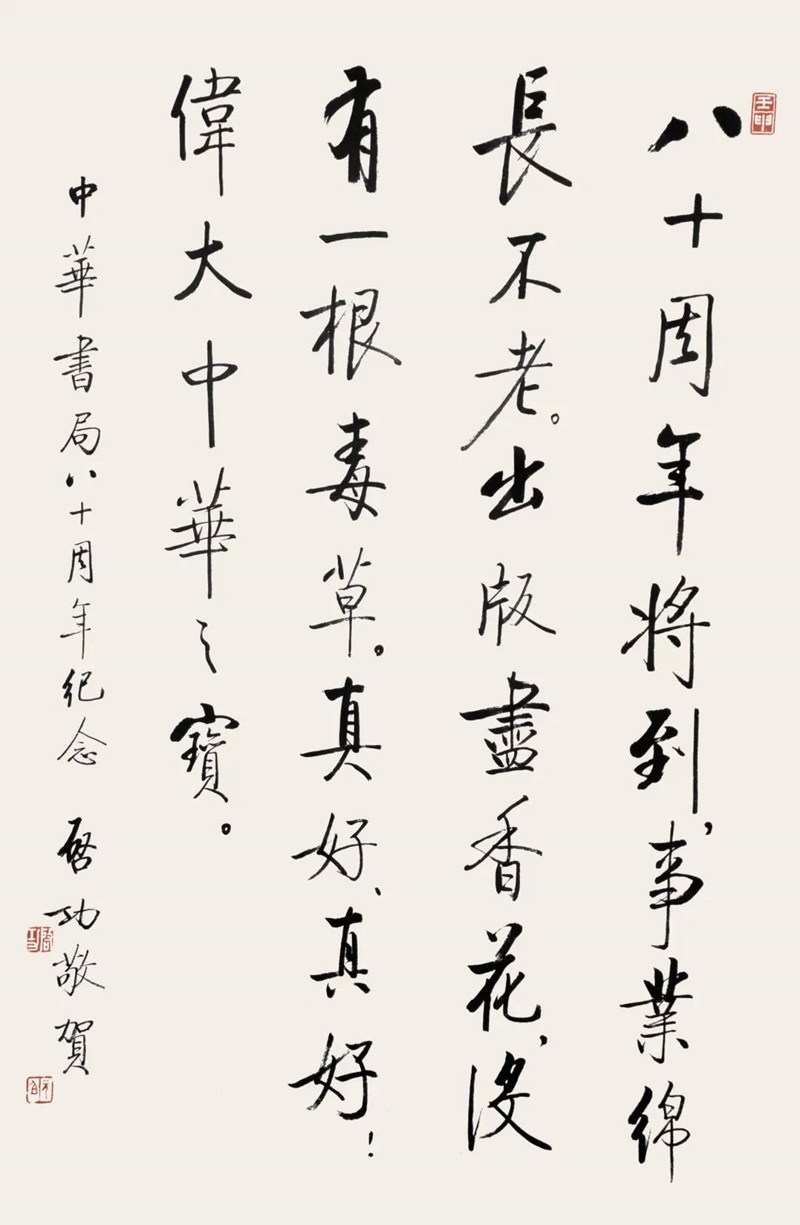 八十周年将到，事業綿
長不老。出版盡香花，没
有一根毒草。真好、真好！
偉大中華之寶。
中華書局八十周年紀念 啓功敬賀